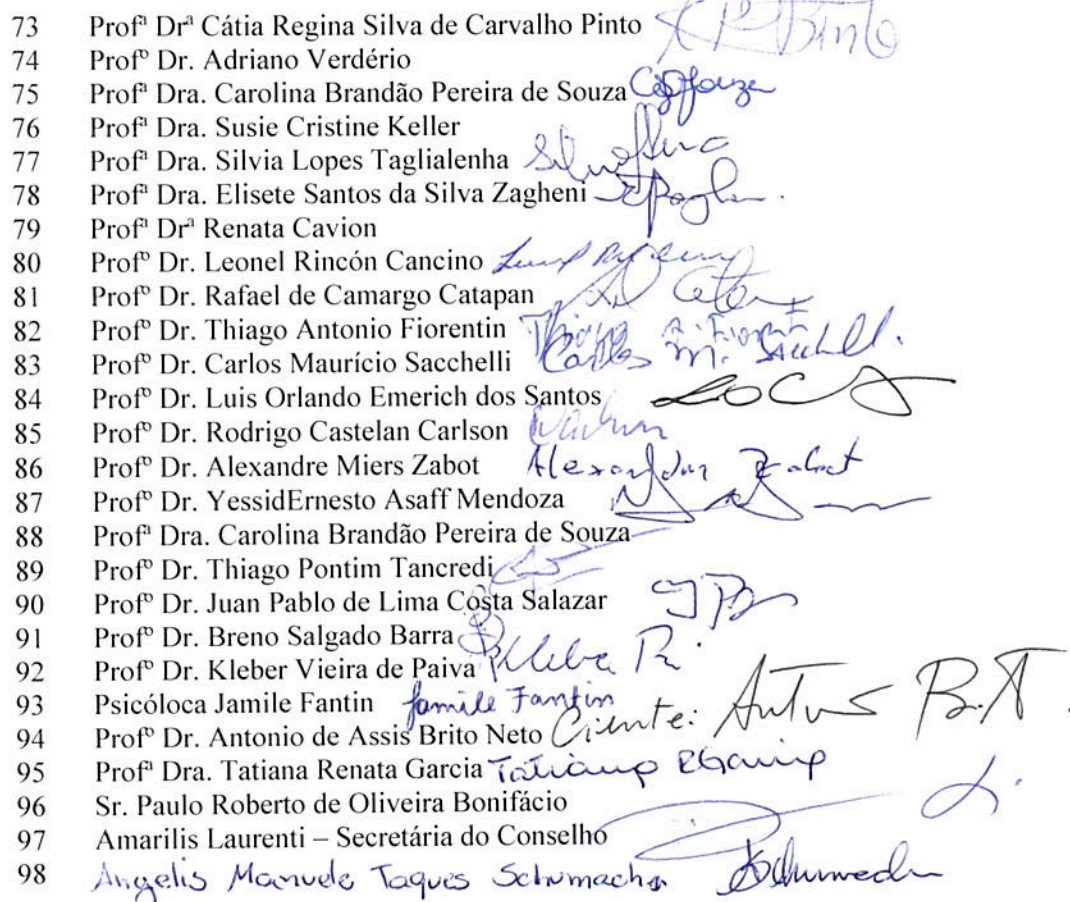 73 Profª Drª Cátia Regina Silva de Carvalho Pinto
74 Profº Dr. Adriano Verdério
75 Profª Dra. Carolina Brandão Pereira de Souza
76 Profª Dra. Susie Cristine Keller
77 Profª Dra. Silvia Lopes Taglialenha
78 Profª Dra. Elisete Santos da Silva Zagheni
79 Profª Drª Renata Cavion
80 Profº Dr. Leonel Rincón Cancino
81 Profº Dr. Rafael de Camargo Catapan
82 Profº Dr. Thiago Antonio Fiorentin
83 Profº Dr. Carlos Maurício Sacchelli Carlos M. Sacchelli.
84 Profº Dr. Luis Orlando Emerich dos Santos
85 Profº Dr. Rodrigo Castelan Carlson
86 Profº Dr. Alexandre Miers Zabot Alexandre Zabot
87 Profº Dr. YessidErnesto Asaff Mendoza
88 Profª Dra. Carolina Brandão Pereira de Souza
89 Profº Dr. Thiago Pontim Tancredi
90 Profº Dr. Juan Pablo de Lima Costa Salazar
91 Profº Dr. Breno Salgado Barra
92 Profº Dr. Kleber Vieira de Paiva
93 Psicóloca Jamile Fantin Jamile Fantin
94 Profº Dr. Antonio de Assis Brito Neto Ciente:
95 Profª Dra. Tatiana Renata Garcia Tatiana RGarcia
96 Sr. Paulo Roberto de Oliveira Bonifácio
97 Amarilis Laurenti – Secretária do Conselho
98 Angelis Manuele Taques Schumacher